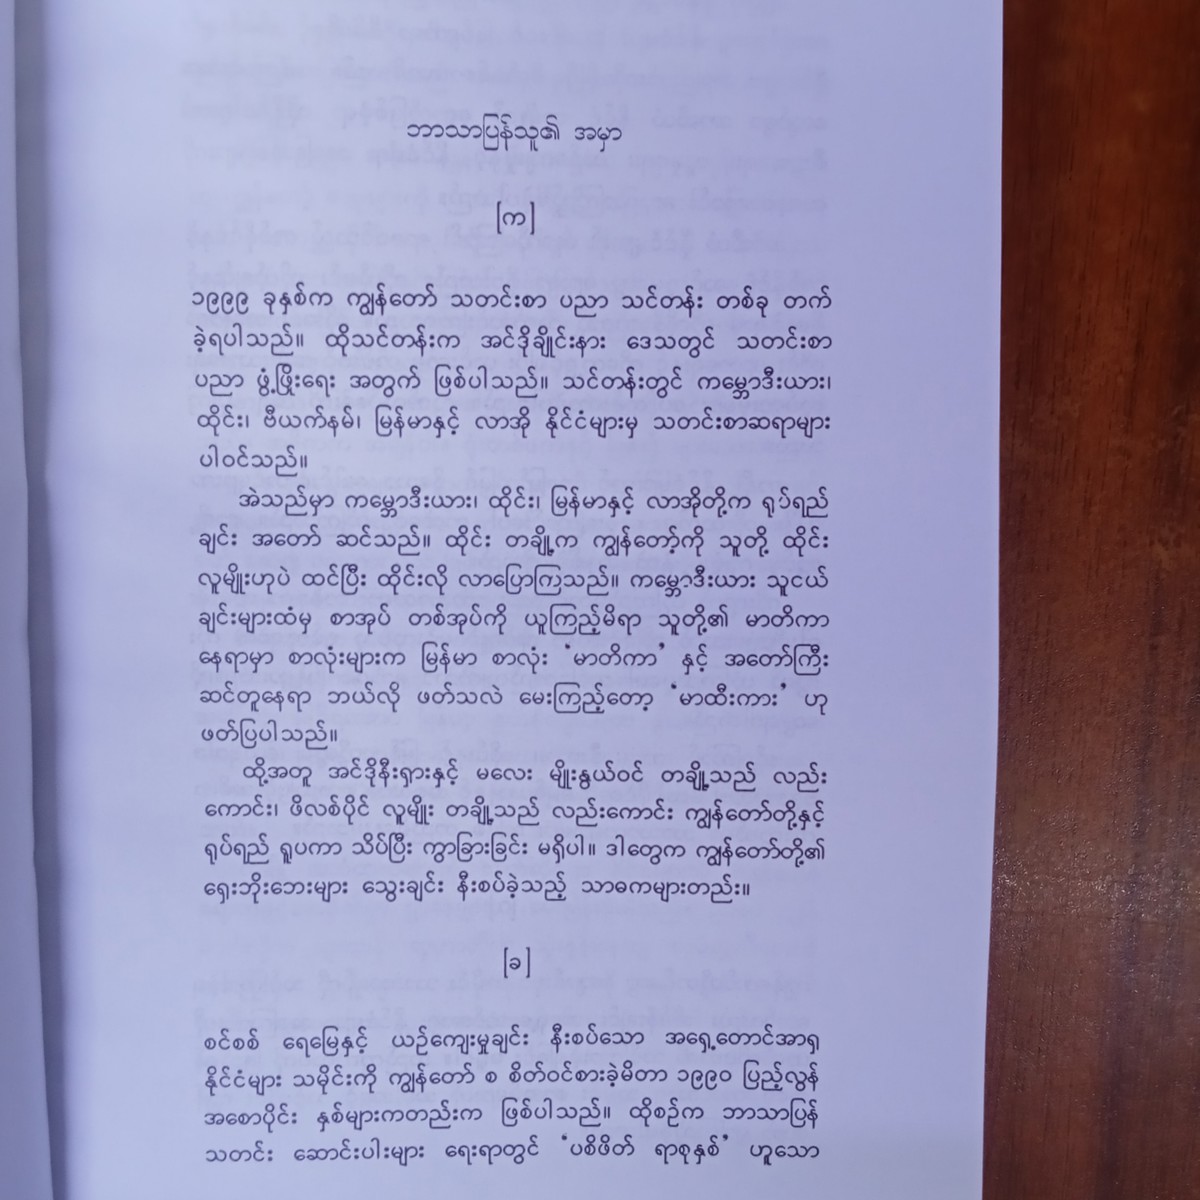 ဘာသာပြန်သူ၏ အမှာ
[က]
၁၉၉၉ ခုနှစ်က ကျွန်တော် သတင်းစာ ပညာ သင်တန်း တစ်ခု တက်
ခဲ့ရပါသည်။ ထိုသင်တန်းက အင်ဒိုချိုင်းနား ဒေသတွင် သတင်းစာ
ပညာ ဖွံ့ဖြိုးရေး အတွက် ဖြစ်ပါသည်။ သင်တန်းတွင် ကမ္ဘောဒီးယား၊
ထိုင်း၊ ဗီယက်နမ်၊ မြန်မာနှင့် လာအို နိုင်ငံများမှ သတင်းစာဆရာများ
ပါဝင်သည်။
အဲသည်မှာ ကမ္ဘောဒီးယား၊ ထိုင်း၊ မြန်မာနှင့် လာအိုတို့က ရုပ်ရည်
ချင်း အတော် ဆင်သည်။ ထိုင်း တချို့က ကျွန်တော့်ကို သူတို့ ထိုင်း
လူမျိုးဟုပဲ ထင်ပြီး ထိုင်းလို လာပြောကြသည်။ ကမ္ဘောဒီးယား သူငယ်
ချင်းများထံမှ စာအုပ် တစ်အုပ်ကို ယူကြည့်မိရာ သူတို့၏ မာတိကာ
နေရာမှာ စာလုံးများက မြန်မာ စာလုံး ‘မာတိကာ’ နှင့် အတော်ကြီး
ဆင်တူနေရာ ဘယ်လို ဖတ်သလဲ မေးကြည့်တော့ ‘မာထီးကား’ ဟု
ဖတ်ပြပါသည်။
ထို့အတူ အင်ဒိုနီးရှားနှင့် မလေး မျိုးနွယ်ဝင် တချို့သည် လည်း
ကောင်း၊ ဖိလစ်ပိုင် လူမျိုး တချို့သည် လည်းကောင်း ကျွန်တော်တို့နှင့်
ရုပ်ရည် ရူပကာ သိပ်ပြီး ကွာခြားခြင်း မရှိပါ။ ဒါတွေက ကျွန်တော်တို့၏
ရှေးဘိုးဘေးများ သွေးချင်း နီးစပ်ခဲ့သည့် သာဓကများတည်း။
[ခ]
စင်စစ် ရေမြေနှင့် ယဉ်ကျေးမှုချင်း နီးစပ်သော အရှေ့တောင်အာရှ
နိုင်ငံများ သမိုင်းကို ကျွန်တော် စ စိတ်ဝင်စားခဲ့မိတာ ၁၉၉၀ ပြည့်လွန်
အစောပိုင်း နှစ်များကတည်းက ဖြစ်ပါသည်။ ထိုစဉ်က ဘာသာပြန်
သတင်း ဆောင်းပါးများ ရေးရာတွင် ‘ပစိဖိတ် ရာစုနှစ်’ ဟူသော